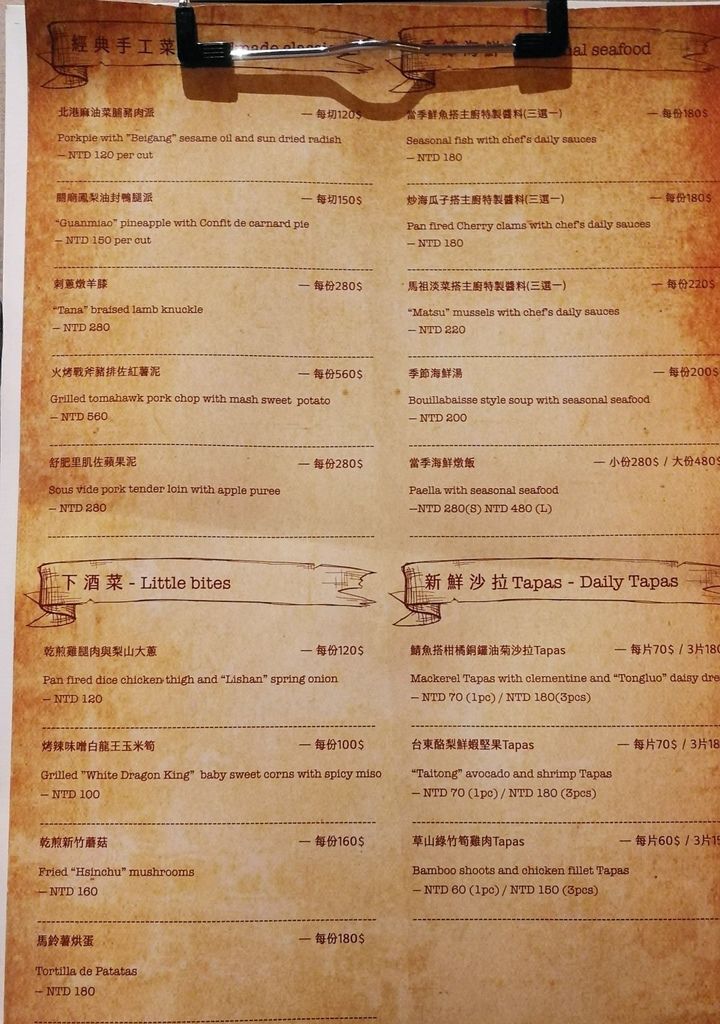 經典手工菜
北港麻油菜脯豬肉派 — 每切120$
Porkpie with "Beigang" sesame oil and sun dried radish
— NTD 120 per cut
關廟鳳梨油封鴨腿派 — 每切150$
"Guanmiao" pineapple with Confit de carnard pie
— NTD 150 per cut
刺蔥燉羊膝 — 每份280$
"Tana" braised lamb knuckle
— NTD 280
火烤戰斧豬排佐紅薯泥 — 每份560$
Grilled tomahawk pork chop with mash sweet potato
— NTD 560
舒肥里肌佐蘋果泥 — 每份280$
Sous vide pork tender loin with apple puree
— NTD 280
下酒菜 - Little bites
乾煎雞腿肉與梨山大蔥 — 每份120$
Pan fired dice chicken thigh and "Lishan" spring onion
— NTD 120
烤辣味噌白龍王玉米筍 — 每份100$
Grilled "White Dragon King" baby sweet corns with spicy miso
— NTD 100
乾煎新竹蘑菇 — 每份160$
Fried "Hsinchu" mushrooms
— NTD 160
馬鈴薯烘蛋 — 每份180$
Tortilla de Patatas
— NTD 180
seafood
當季鮮魚搭主廚特製醬料(三選一) — 每份180$
Seasonal fish with chef's daily sauces
— NTD 180
炒海瓜子搭主廚特製醬料(三選一) — 每份180$
Pan fired Cherry clams with chef's daily sauces
— NTD 180
馬祖淡菜搭主廚特製醬料(三選一) — 每份220$
"Matsu" mussels with chef's daily sauces
— NTD 220
季節海鮮湯 — 每份200$
Bouillabaisse style soup with seasonal seafood
— NTD 200
當季海鮮燉飯 — 小份280$ / 大份480$
Paella with seasonal seafood
—NTD 280(S) NTD 480 (L)
新鮮沙拉Tapas - Daily Tapas
鯖魚搭柑橘銅鑼油菊沙拉Tapas — 每片70$ / 3片180
Mackerel Tapas with clementine and "Tongluo" daisy dre
— NTD 70 (1pc) / NTD 180(3pcs)
台東酪梨鮮蝦堅果Tapas — 每片70$ / 3片18
"Taitong" avocado and shrimp Tapas
— NTD 70 (1pc) / NTD 180 (3pcs)
草山綠竹筍雞肉Tapas — 每片60$ / 3片15
Bamboo shoots and chicken fillet Tapas
— NTD 60 (1pc) / NTD 150 (3pcs)